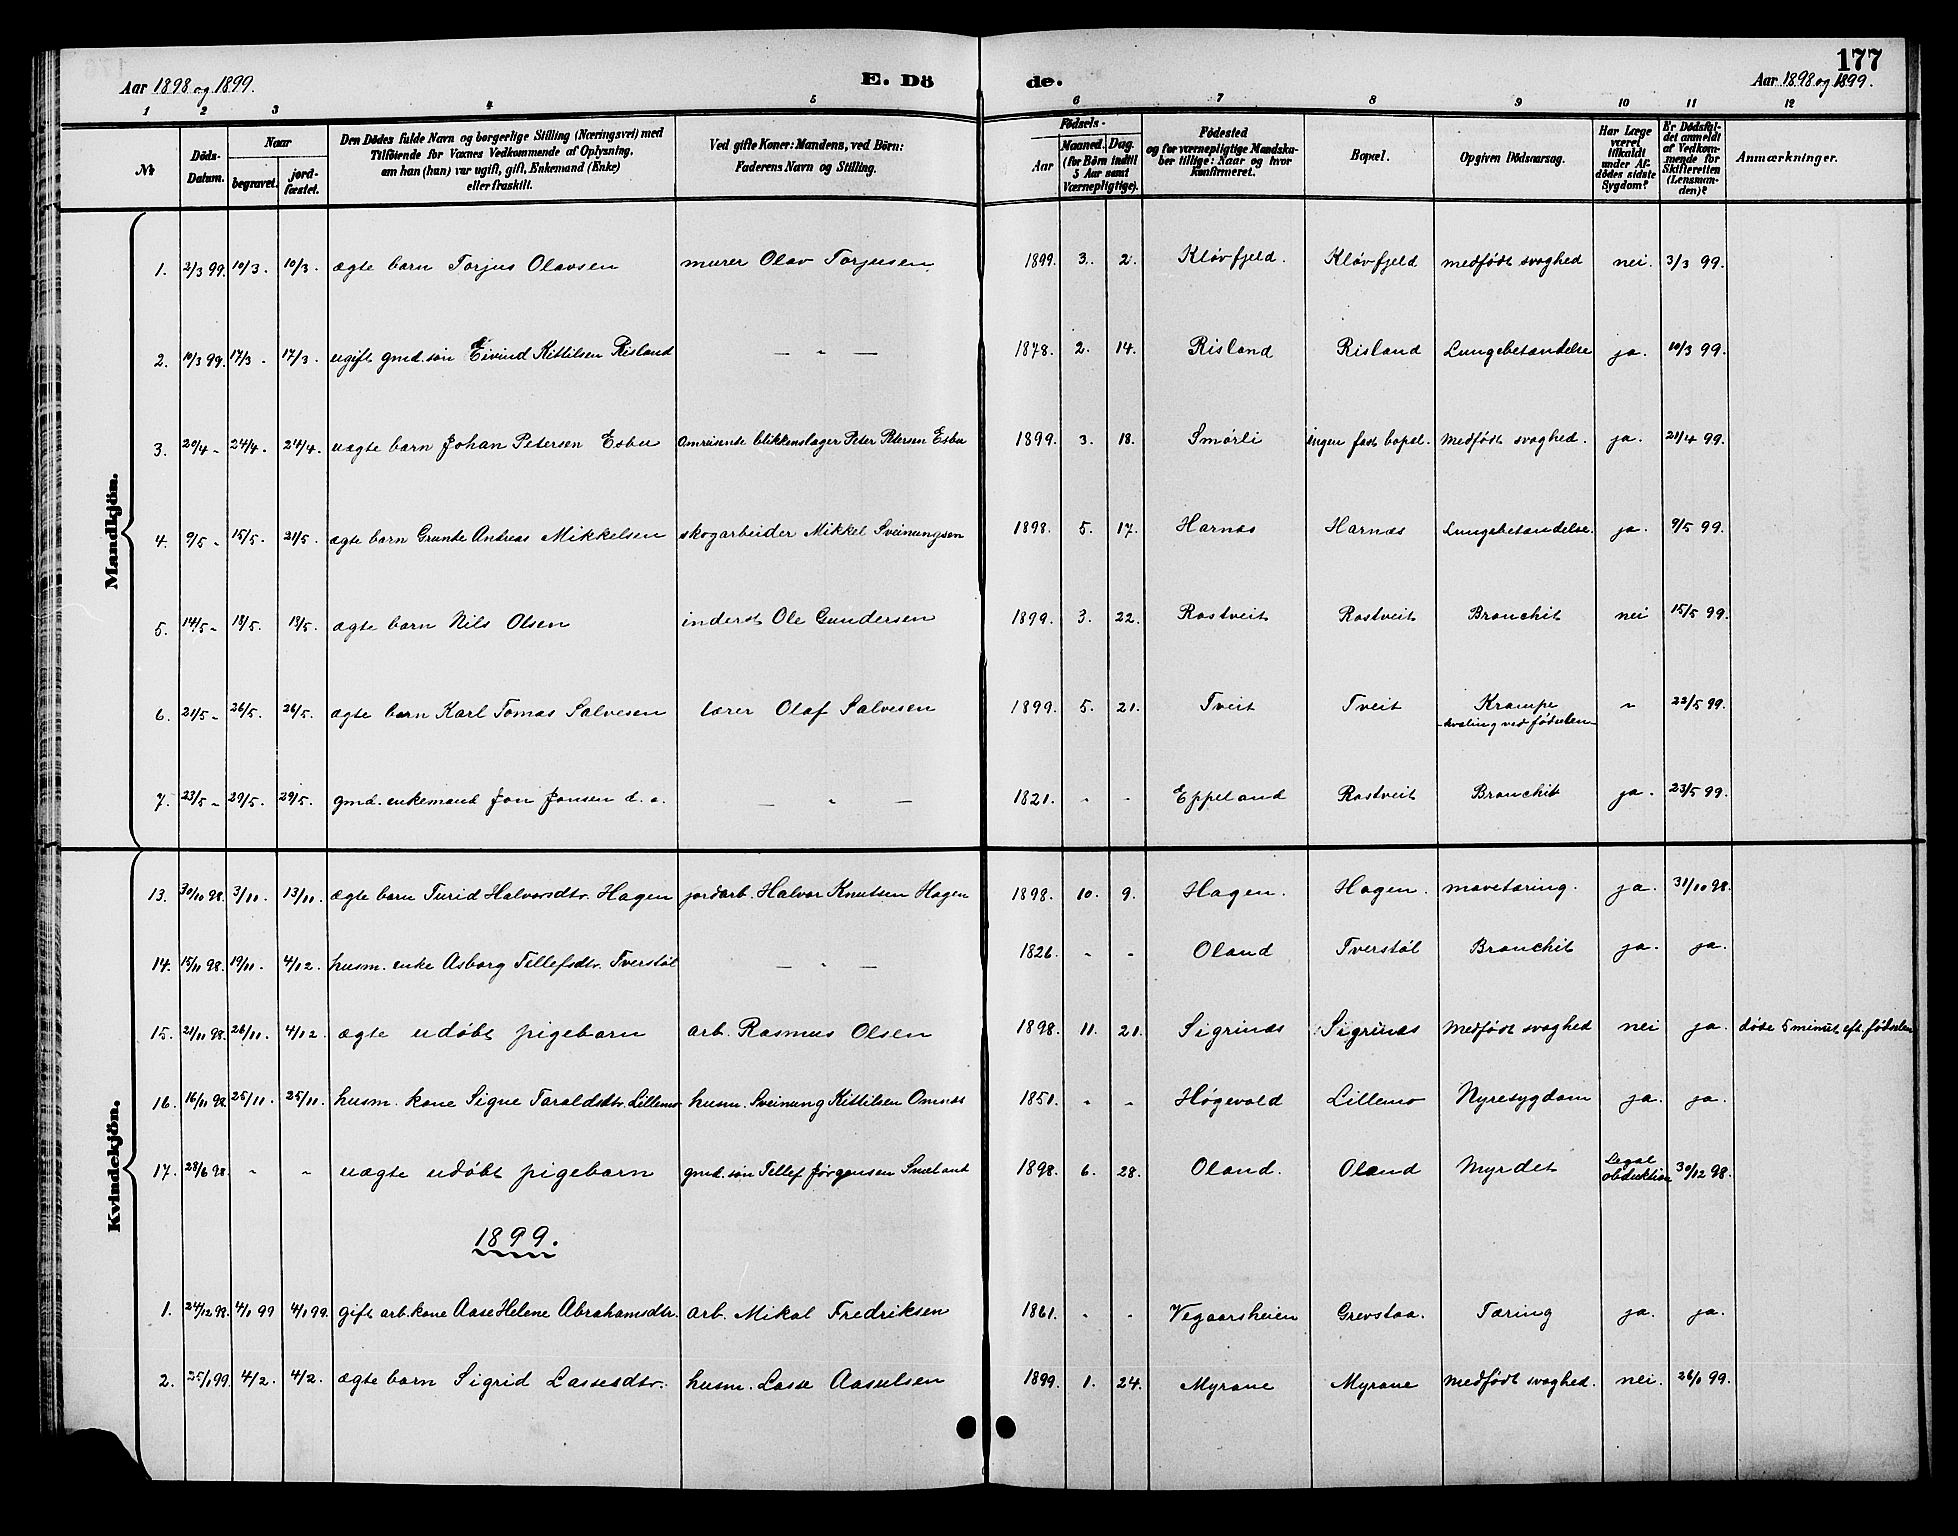 177
Aar 1898 og 1899. E. Dö de. Aar 1898 og 1899.
1 2 3 4 5 6 7 8 9 10 11 12
№ Döds-Datum. Naar begravet. jord-fæstet. Den Dödes fulde Navn og borgerlige Stilling (Næringsvei) med Tilföiende for Voxnes Vedkommende af Oplysning, om han (hun) var ugift, gift, Enkemand (Enke) eller fraskilt. Ved gifte Koner: Mandens, ved Börn: Faderens Navn og Stilling. Födsels- Aar Maaned. Dag. (for Börn indtil 5 Aar samt Værnepligtige). Födested og for værnepligtige Mandskaber tillige: Naar og hvor konfirmeret. Bopæl. Opgiven Dödsaarsag. Har Læge været tilkaldt under Afdödes sidste Sygdom? Er Dödsfaldet anmeldt af Vedkommende for Skifteretten (Lensmanden)? Anmærkninger.
Mandkjön.
1. 2/3 99. 10/3. 10/3. ægte barn Torjus Olavsen murer Olav Torjusen 1899. 3. 2. Kløvfjeld. Kløvfjeld medfødt svaghed nei. 3/3 99.
2. 10/3 99. 17/3. 17/3. ugift gmd. søn Eivind Kittilsen Risland — " — 1878. 2. 14. Risland Risland Lungebetændelse ja. 10/3 99.
3. 20/4 - 24/4. 24/4. uægte barn Johan Petersen Esbu Omreisende blikkenslager Peter Petersen Esbu 1899. 3. 18. Smørli ingen fast bopel. Medfødt svaghed. ja. 21/4 99.
4. 9/5 - 15/5. 21/5. ægte barn Grunde Andreas Mikkelsen skogarbeider Mikkel Sveinungsen 1898. 5. 17. Harnæs Harnæs Lungebetændelse. ja. 9/5 99.
5. 14/5 - 18/5. 18/5. ægte barn Nils Olsen inderst Ole Gundersen 1899. 3. 22. Rostveit Rostveit Bronchit nei 15/5 99.
6. 21/5 - 26/5. 26/5. ægte barn Karl Tomas Salvesen lærer Olaf Salvesen 1899. 5. 21. Tveit Tveit Krampe - kvæling ved fødselen - " 22/5 99.
7. 23/5 - 29/5. 29/5. gmd. enkemand Jon Jonsen d. æ. — " — 1821. - - Eppeland Rostveit Bronchit ja. 23/5 99.
Kvindekjön.
13. 30/10 98. 3/11. 13/11. ægte barn Turid Halvorsdtr. Hagen jordarb. Halvor Knutsen Hagen 1898. 10. 9. Hagen. Hagen. mavetæring. ja. 31/10 98.
14. 15/11 98. 19/11. 4/12. husm. enke Asborg Tellefsdtr. Tverstøl — " — 1826. - - Oland Tverstøl Bronchit ja. ja.
15. 21/11 98. 26/11. 4/12. ægte udøbt pigebarn arb. Rasmus Olsen 1898. 11. 21. Sigrinæs Sigrinæs Medfødt svaghed nei ja. døde 5 minut eft. fødselen
16. 16/11 98. 25/11. 25/11. husm. kone Signe Taraldsdtr. Lillemo husm. Sveinung Kittilsen Omnæs 1851. - - Høgevold Lillemo Nyresygdom ja. ja.
17. 28/6 98. - - uægte udøbt pigebarn gmd. søn Tellef Jørgensen Smeland 1898. 6. 28. Oland. Oland Myrdet Legal obduktion 30/12 98.
1899.
1. 24/12 98. 4/1 99 4/1 99. gift arb. kone Aase Helene Abrahamsdtr. arb. Mikal Fredriksen 1861. - - Vegaarsheien Grevstaa. Tæring ja. ja.
2. 25/1 99. 4/2. 4/2. ægte barn Sigrid Lassesdtr. husm. Lasse Aasulsen 1899. 1. 24. Myrane Myrane Medfødt svaghed. nei. 26/1 99.